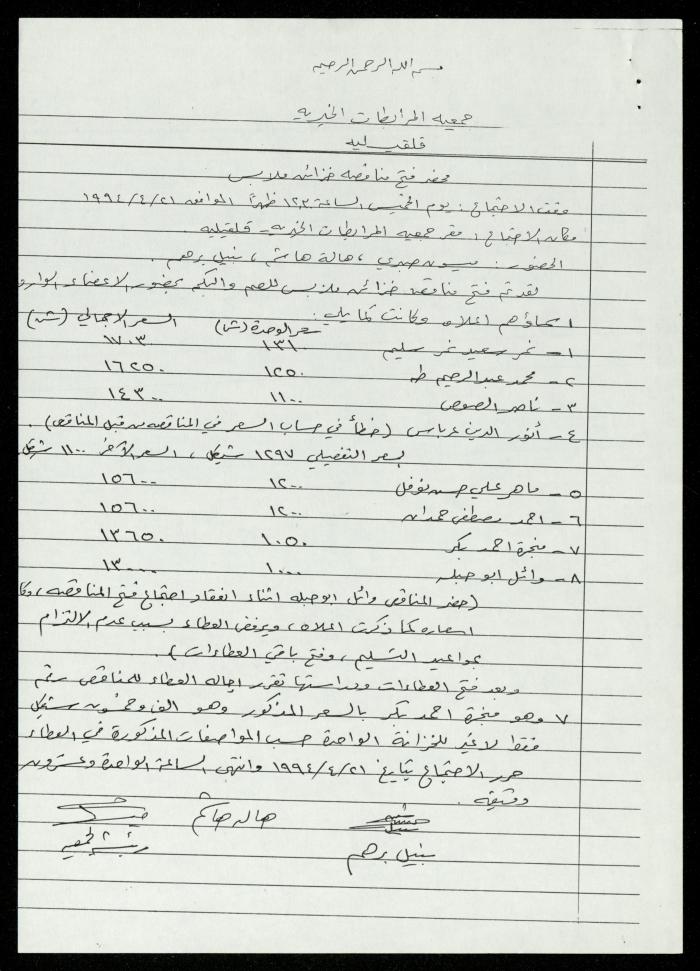 بسم الله الرحمن الرحيم
جمعيه المرابطات الخيريه
قلقيليه
محضر فتح مناقصه خزائن ملابس
وقت الاجتماع : يوم الخميس الساعة ١٢،٣٠ ظهراً الموافق ١٩٩٤/٤/٢١
مكان الاجتماع : مقر جمعيه المرابطات الخيريه - قلقيليه .
الحضور : ميسون صبري ، هالة هاشم ، نبيل برهم .
لقد تم فتح مناقصة خزائن ملابس للصم والبكم بحضور الاعضاء الوارد
اسماؤهم اعلاه وكانت كما يلي : سعر الوحدة (ش) السعر الاجمالي (ش)
١ - نمر سعيد نمر سليم ١٣١٠ ١٧٠٣٠
٢ - محمد عبد الرحيم طه ١٢٥٠ ١٦٢٥٠
٣ - ناصر الصوص ١١٠٠ ١٤٣٠٠
٤ - أنور الدين عرباس (خطأ في حساب السعر في المناقصه من قبل المناقص) .
بسعر التفصيلي ١٢٩٧ شيكل ، السعر الآخر ١١٠٠٠ شيكل
٥ - ماهر علي حسن نوفل ١٢٠٠ ١٥٦٠٠
٦ - احمد مصطفى حمدان ١٢٠٠ ١٥٦٠٠
٧ - منجرة احمد بكر ١٠٥٠ ١٣٦٥٠
٨ - وائل ابو حبله ١٠٠٠ ١٣٠٠٠
(حضر المناقص وائل ابو حبله اثناء انعقاد اجتماع فتح المناقصه ،
اسعاره كما ذكرت اعلاه ، ويرفض العطاء بسبب عدم الالتزام
بمواعيد التسليم ، وفتح باقي العطاءات) .
وبعد فتح العطاءات ودراستها تقرر احاله العطاء للمناقص رقم
٧ وهو منجرة احمد بكر بالسعر المذكور وهو الف وخمسون شيكل
فقط لا غير للخزانة الواحدة حسب المواصفات المذكورة في العطاء
حرر الاجتماع بتاريخ ١٩٩٤/٤/٢١ وانتهى الساعة الواحدة وعشرون
دقيقه .
هاله هاشم
نبيل برهم رئيسة الجمعيه